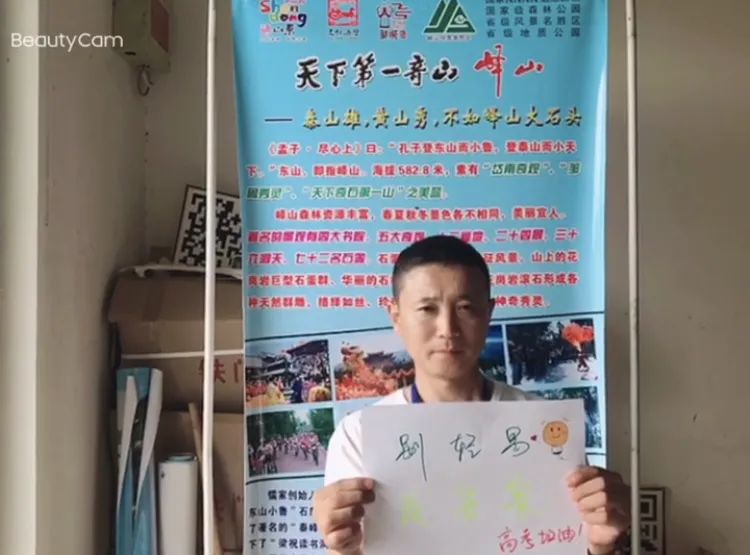 BeautyCam
Shandong
国家级森林公园
省级风景名胜区
省级地质公园
天下第一奇山 峄山
——泰山雄,黄山秀,不如峄山大石头
《孟子·尽心上》曰:"孔子登东山而小鲁,登泰山而小天
下。"东山、即指峄山。海拔582.8米,素有"岱南奇观"、"邹
鲁秀灵"、"天下奇石第一山"之美誉。
峄山森林资源丰富,春夏秋冬景色各不相同,美丽宜人。
著名的景观有四大书院、五大奇观、二十四景、三十
六洞天、七十二名石
征风景,山上的花
岗岩巨型石蛋群、华丽的石
岗岩滚石形成各
种天然群雕,栩栩如生、玲
神奇秀灵。
别轻易
高考加油!
儒家创始人
东山小鲁"石
了著名的"秦峄
下了"梁祝读书洞